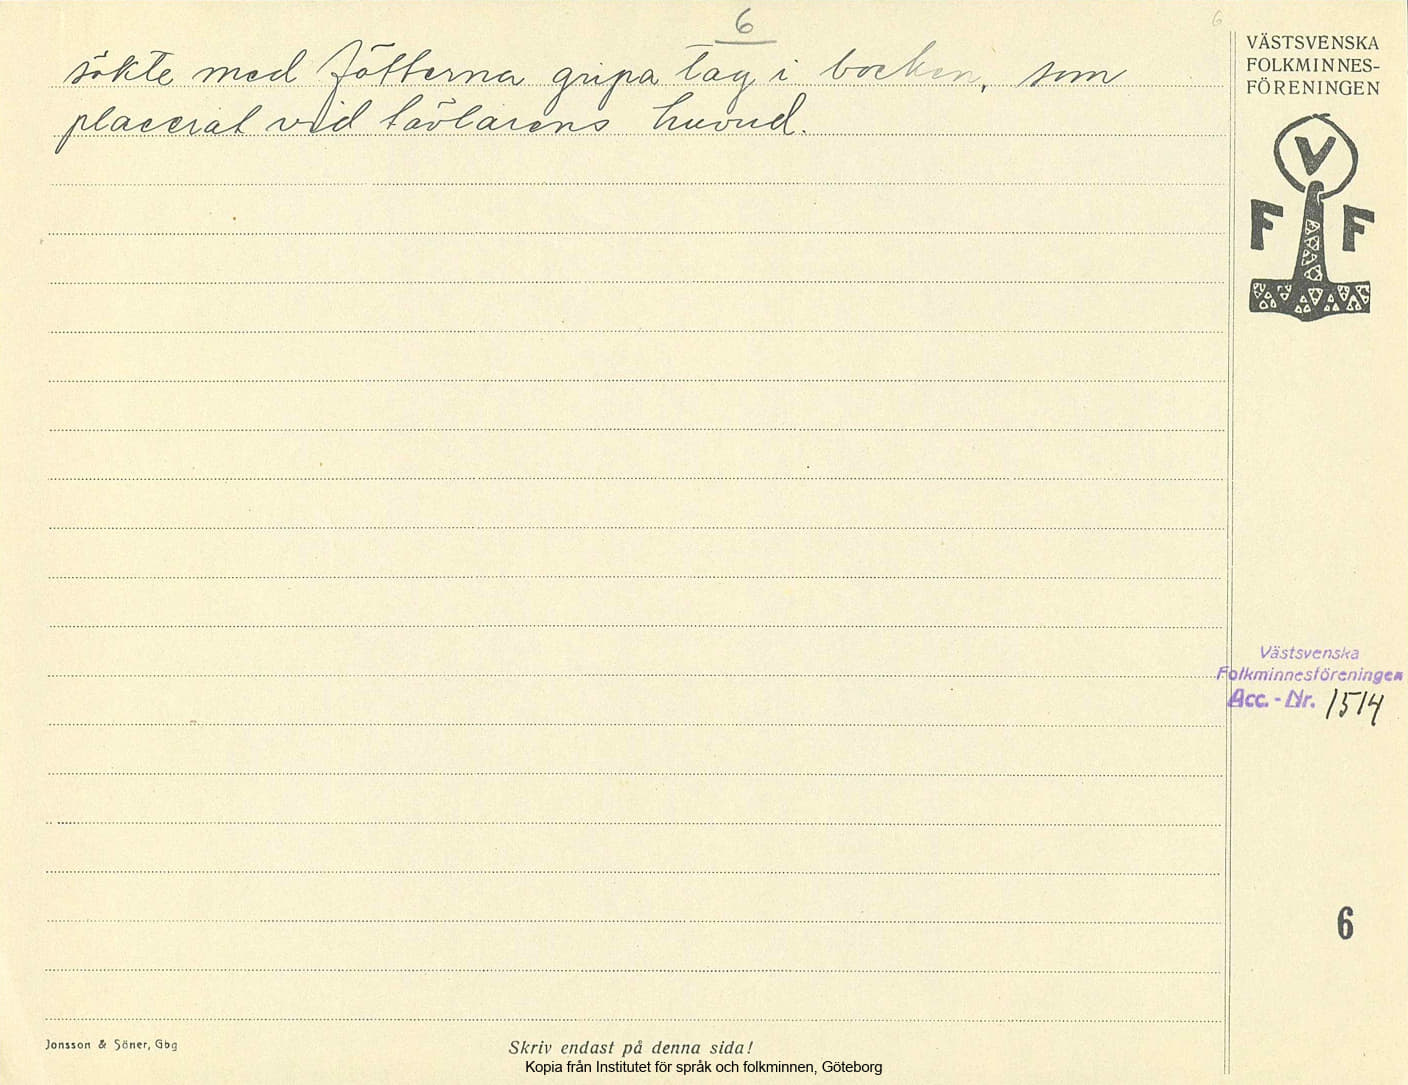 6
6
sökte med fötterna gripa tag i bocken, som
placerat vid tävlarens huvud.
VÄSTSVENSKA
FOLKMINNES-
FÖRENINGEN
V
F F
Västsvenska
Folkminnesföreningen
Acc. - Nr. 1514
6
Jonsson & Söner, Gbg
Skriv endast på denna sida!
Kopia från Institutet för språk och folkminnen, Göteborg